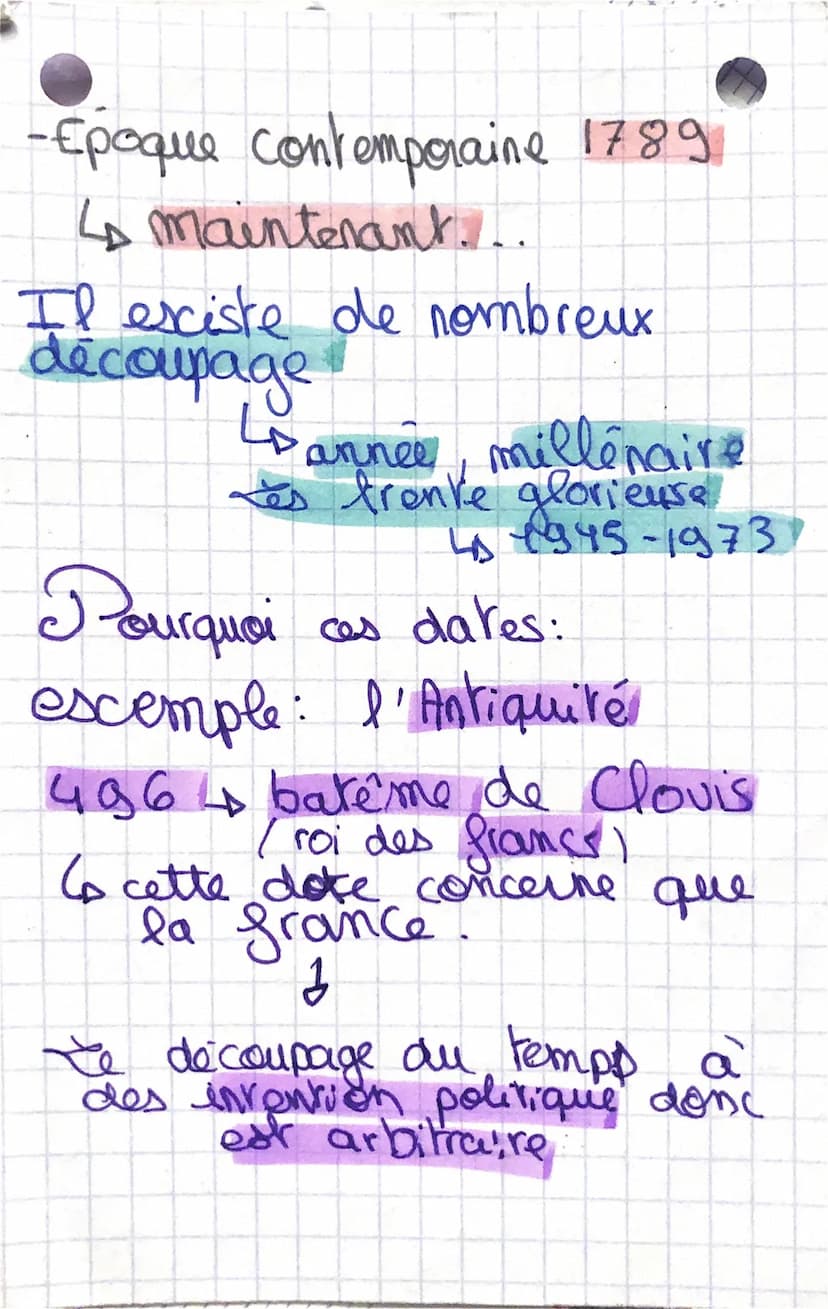 -Epoque contemporaine 1789
↳ maintenant...
Il esciste de nombreux
découpage
↳ année, millénaire
Les trente glorieuse
↳ 1945-1973
Pourquoi ces dates:
escemple: l'Antiquité
496 → batême de Clovis
(roi des francs)
↳ cette date concerne que
la france.
↓
Le découpage du temps à
des intention politique donc
est arbitraire